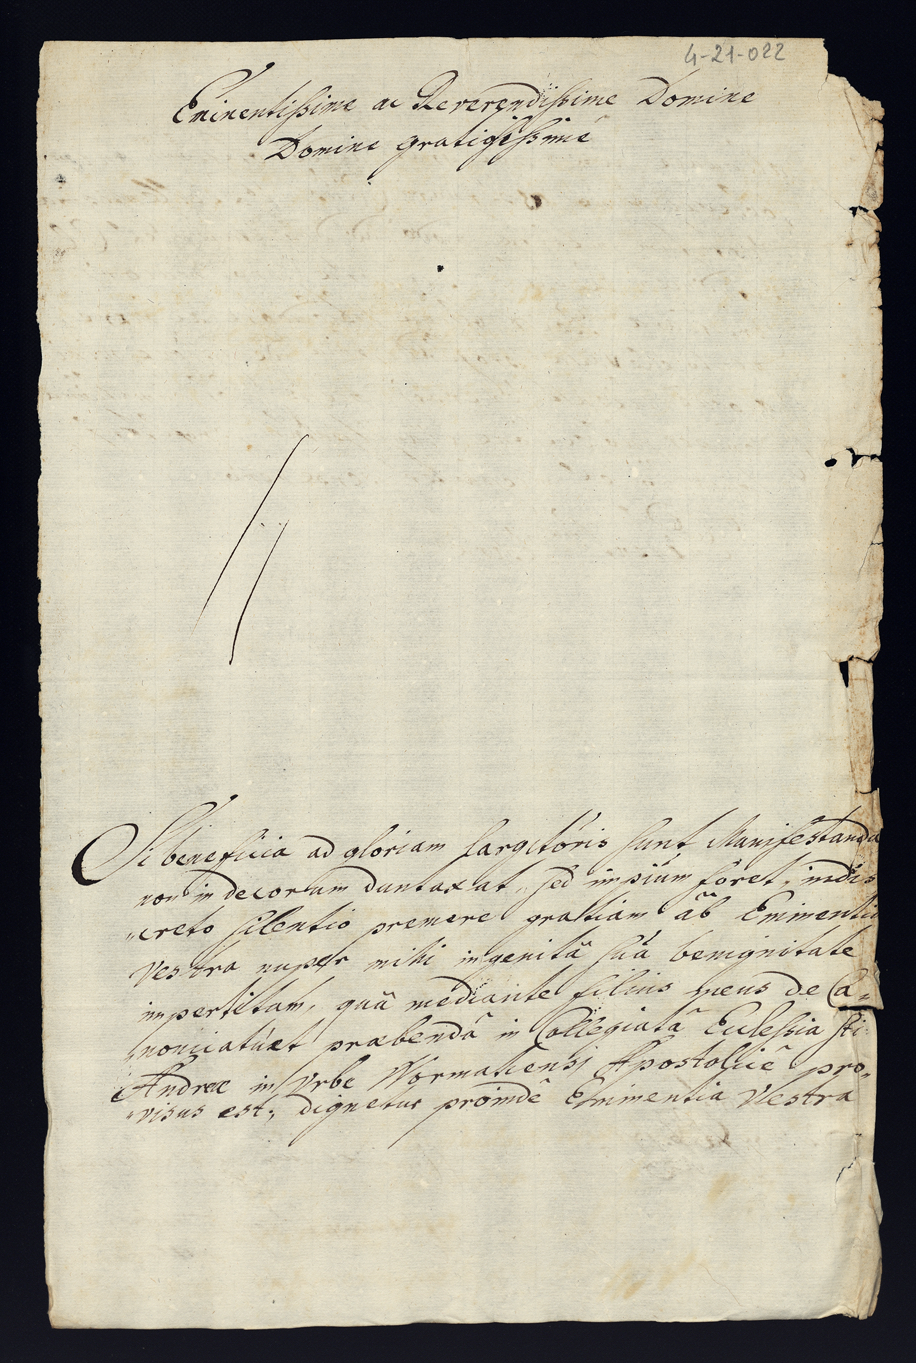 4-21-022
Eminentissime ac Reverendissime Domine
Domine gratiosissime
Si beneficia ad gloriam largitoris sunt Manifestanda
non indecorum duntaxat, sed impium foret, indis
„creto silentio premere gratiam ab Eminentia
Vestra nuper mihi ingenitâ suâ benignitate
impertitam, quâ mediante filius meus de Ca„
„nonicatu et præbendâ in Collegiatâ Ecclesia Sti
Andreæ in Urbe Wormatiensi Apostolicè pro„
„visus est, dignetur proindè Eminentia Vestra